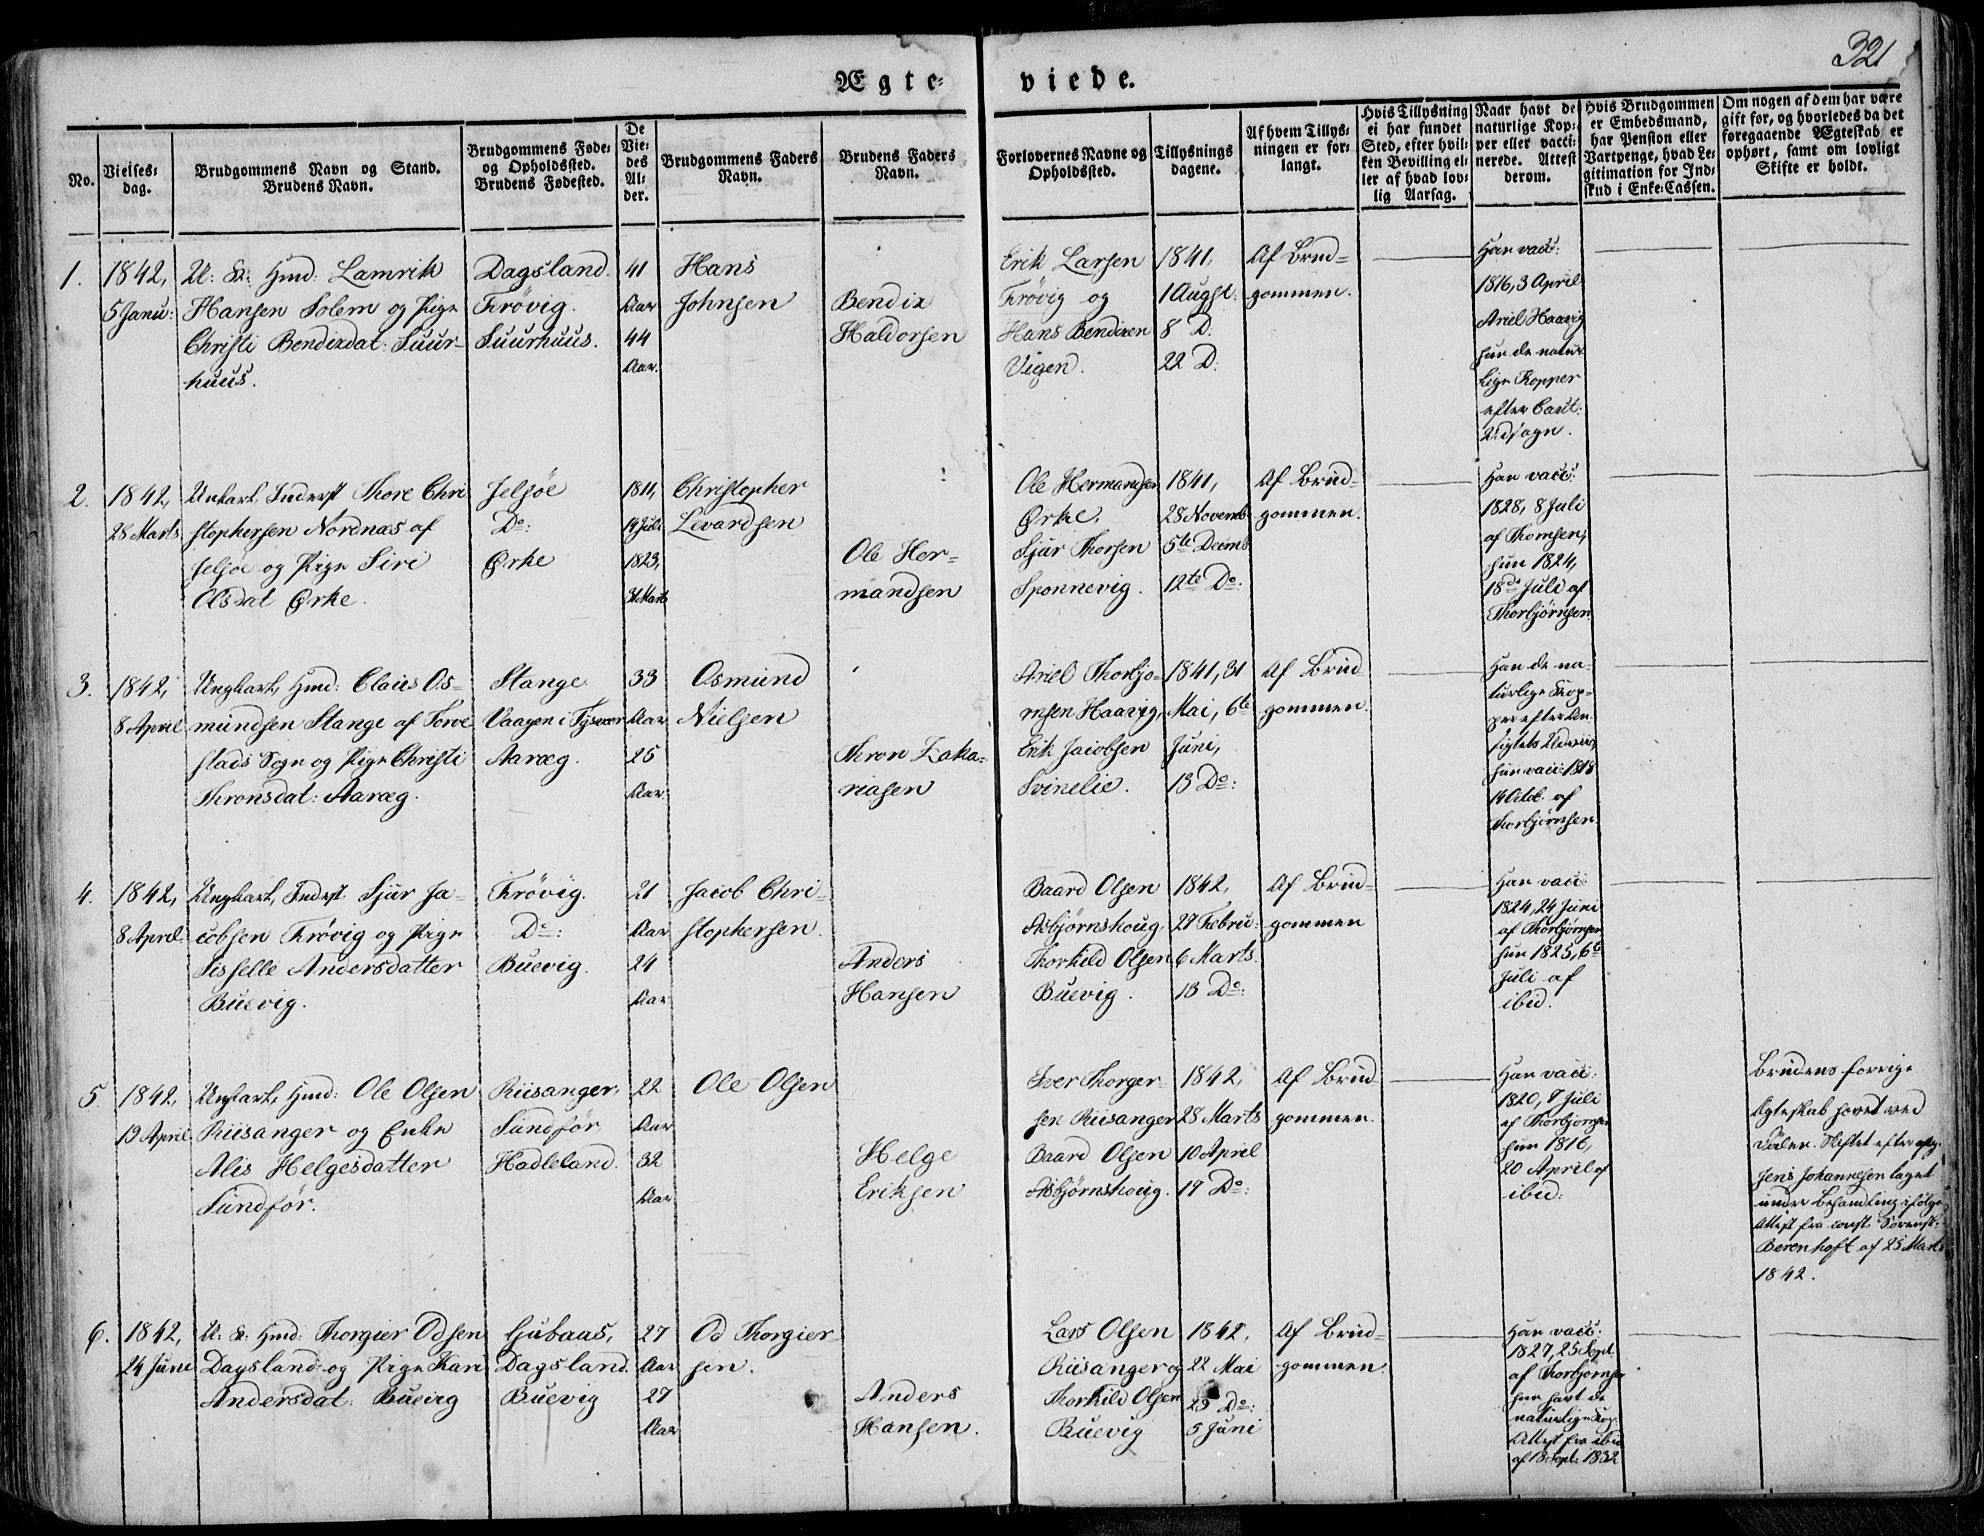 321
Ægte-viede.
No.
Vielses-
dag.
Brudgommens Navn og Stand.
Brudens Navn.
Brudgommens Føde-
og Opholdssted.
Brudens Fødested.
De
Vie-
des
Al-
der.
Brudgommens Faders
Navn.
Brudens Faders
Navn.
Forlovernes Navne og
Opholdssted.
Tillysnings
dagene.
Af hvem Tillys-
ningen er for-
langt.
Hvis Tillysning
ei har fundet
Sted, efter hvil-
ken Bevilling el-
ler af hvad lov-
lig Aarsag.
Naar havt de
naturlige Kop-
per eller vacci-
nerede. Attest
derom.
Hvis Brudgommen
er Embedsmand,
har Pension eller
Vartpenge, hvad Le-
gitimation for Ind-
skud i Enke-Cassen.
Om nogen af dem har være
gift før, og hvorledes da det
foregaaende Ægteskab er
ophørt, samt om lovligt
Skifte er holdt.
1.
1842,
5 Janu:
U: K: Hmd: Lamrik
Hansen Solem og Pige
Christi Bendixdat: Suur-
huus.
Dagsland.
Frøvig.
Suurhuus.
41
Aar
44
Aar.
Hans
Johnsen
Bendix
Haldorsen
Erik Larsen
Frøvig og
Hans Bendixen
Vigen.
1841,
1 Augst:
8 D.
22 D:
Af Brud-
gommen.
Han vacc:
1816, 3 April
Ariel Haavig
hun de natur
lige Kopper
efter
Udsagn.
2.
1842,
28 Marts
Unkarl, Inderst Thore Chri
stophersen Nordnæs af
Jelsøe og Pige Siri
Olsdat Ørke.
Jelsøe
Do:
Ørke
1811,
19 Juli
1823,
31 Marts
Christopher
Levardsen
Ole Her-
mandsen
Ole Hermandsen
Ørke,
Sjur Thorsen
Sponnevig.
1841,
28 Novemb
5te Decmb
12te Do:
Af Brud-
gommen.
Han vacc:
1828, 8 Juli
af Thomsen,
hun 1824,
18de Juli af
Thorbjørnsen
3.
1842,
8 April
Ungkarl, Hmd: Claus Os-
mundsen Stange af Torve
stads Sogn og Pige Christi
Thronsdat: Aaræg.
Stange
Vaagen i Tysvær
Aaræg.
33
Aar
25
Aar
Osmund
Nielsen
Thron Zaka-
riasen
Ariel Thorbjø-
rnsen Haavig,
Erik Jacobsen
Svinelie.
1841, 31
Mai, 6te
Juni,
13 Do:
Af Brud-
gommen.
Han de na-
turlige Kop-
per efter An-
sigtets Udvis,
hun vacc: 1818
14 Octob. af
Thorbjørnsen.
4.
1842,
8 April
Ungkarl, Inderst Sjur Ja-
cobsen Frøvig og Pige
Sisselle Andersdatter
Buevig.
Frøvig.
Do:
Buevig.
21
Aar
24
Aar
Jacob Chri-
stophersen.
Anders
Hansen
Baard Olsen
Asbjørnshoug,
Thorkild Olsen
Buevig.
1842,
27 Febru:
6 Marts.
13 Do:
Af Brud-
gommen
Han vacc:
1824, 24 Juni
af Thorbjørnsen
hun 1825, 6te
Juli af
ibid.
5.
1842,
19 April
Ungkarl, Hmd: Ole Olsen
Riisanger og Enke
Alis Helgesdatter
Sundfør.
Riisanger,
Sundfør
Hadleland.
22
Aar
32
Aar
Ole Olsen
Helge
Eriksen
Iver Thorger-
sen Riisanger
Baard Olsen
Asbjørnshoug.
1842,
28 Marts
10 April
17 Do:
Af Brud-
gommen.
Han vacc:
1820, 7 Juli
af Thorbjørnsen
hun 1816,
20 April af
ibid:
Brudens forrige
Ægteskab hævet ved
Døden. Skiftet efter afg.
Jens Johannesen taget
under Behandling ifølge
Attest fra const. Sorenskr.
Berenhoft af 25 Marts
1842.
6.
1842,
24 June
U: K: Hmd: Thorgier Odsen
Dagsland og Pige Kari
Andersdat: Buevig
Gjubaas,
Dagsland.
Buevig
27
Aar
27
Aar
Od Thorgier
sen.
Anders
Hansen.
Lars Olsen
Riisanger og
Thorkild Olsen
Buevig
1842,
22 Mai
29 Do:
5 Juni
Af Brud-
gommen.
Han vacc:
1827, 25 Sept.
af Thorbjørnsen
hun havt de
naturlige Kop.
Attest fra ibid
af 18 Sept. 1832